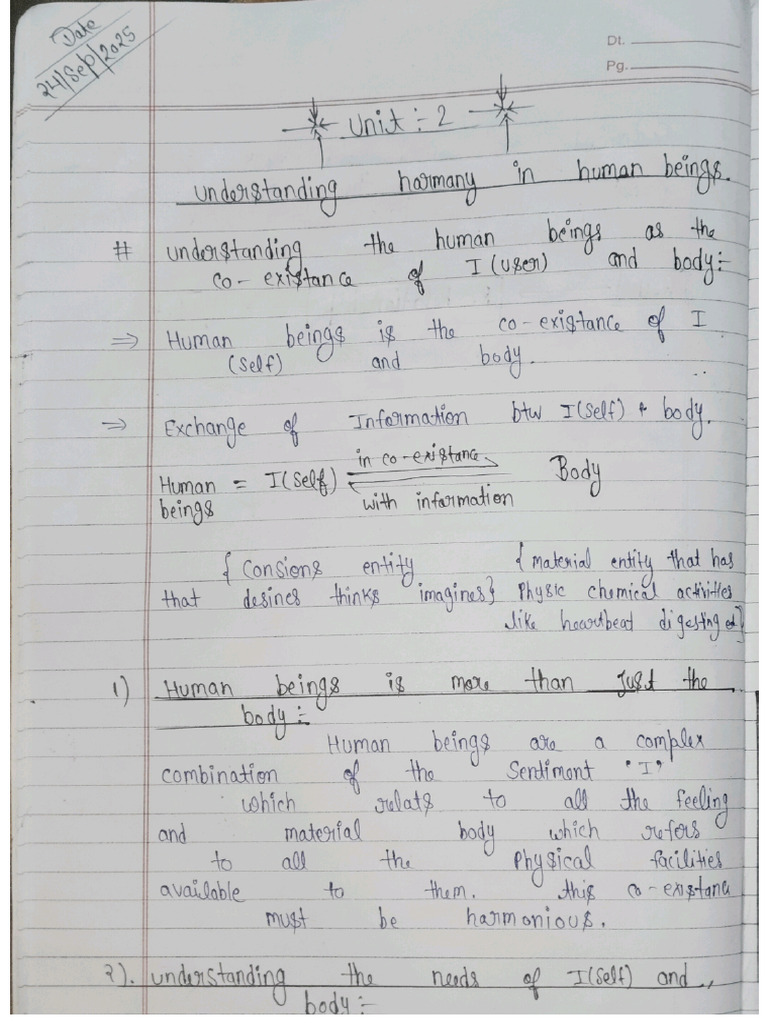 Date
24/Sep/2025
Dt.
Pg.
Unit :- 2
understanding harmany in human beings.
# understanding the human beings as the
co-existance of I (user) and body:-
⇒ Human beings is the co-existance of I
(self) and body.
⇒ Exchange of Information btw I(self) & body.
in co-existance
Human = I(self) Body
beings
with information
{ Consions entity { material entity that has
that desines thinks imagines} Physic chemical activities
like heartbeat digesting }
1) Human beings is more than Just the
body:-
Human beings are a complex
combination of the Sentiment "I"
which relats to all the feeling
and material body which refers
to all the Physical facilities
available to them. this co-existanc
must be harmonious.
2). understanding the needs of I(self) and
body:-